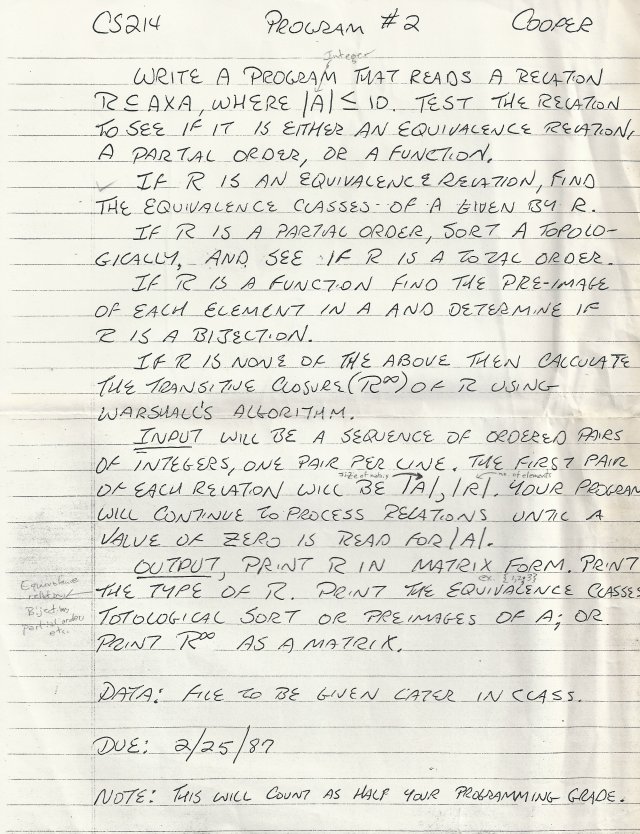 CS214 PROGRAM #2 COOPER
Integer
WRITE A PROGRAM THAT READS A RELATION
R ⊆ AXA, WHERE |A| ≤ 10. TEST THE RELATION
TO SEE IF IT IS EITHER AN EQUIVALENCE RELATION,
A PARTIAL ORDER, OR A FUNCTION.
✓ IF R IS AN EQUIVALENCE RELATION, FIND
THE EQUIVALENCE CLASSES OF A GIVEN BY R.
IF R IS A PARTIAL ORDER, SORT A TOPOLO-
GICALLY, AND SEE IF R IS A TOTAL ORDER.
IF R IS A FUNCTION FIND THE PRE-IMAGE
OF EACH ELEMENT IN A AND DETERMINE IF
R IS A BIJECTION.
IF R IS NONE OF THE ABOVE THEN CALCULATE
THE TRANSITIVE CLOSURE (R∞) OF R USING
WARSHALL'S ALGORITHM.
INPUT WILL BE A SEQUENCE OF ORDERED PAIRS
OF INTEGERS, ONE PAIR PER LINE. THE FIRST PAIR
size of no. of elements
OF EACH RELATION WILL BE |A|, |R|. YOUR PROGRAM
WILL CONTINUE TO PROCESS RELATIONS UNTIL A
VALUE OF ZERO IS READ FOR |A|.
OUTPUT, PRINT R IN MATRIX FORM. PRINT
ex. {1,2,3}
THE TYPE OF R. PRINT THE EQUIVALENCE CLASSES
TOTOLOGICAL SORT OR PREIMAGES OF A; OR
PRINT R∞ AS A MATRIX.
Equivalence
relation
Bijection
partial order
etc.
DATA: FILE TO BE GIVEN LATER IN CLASS.
DUE: 2/25/87
NOTE: THIS WILL COUNT AS HALF YOUR PROGRAMMING GRADE.